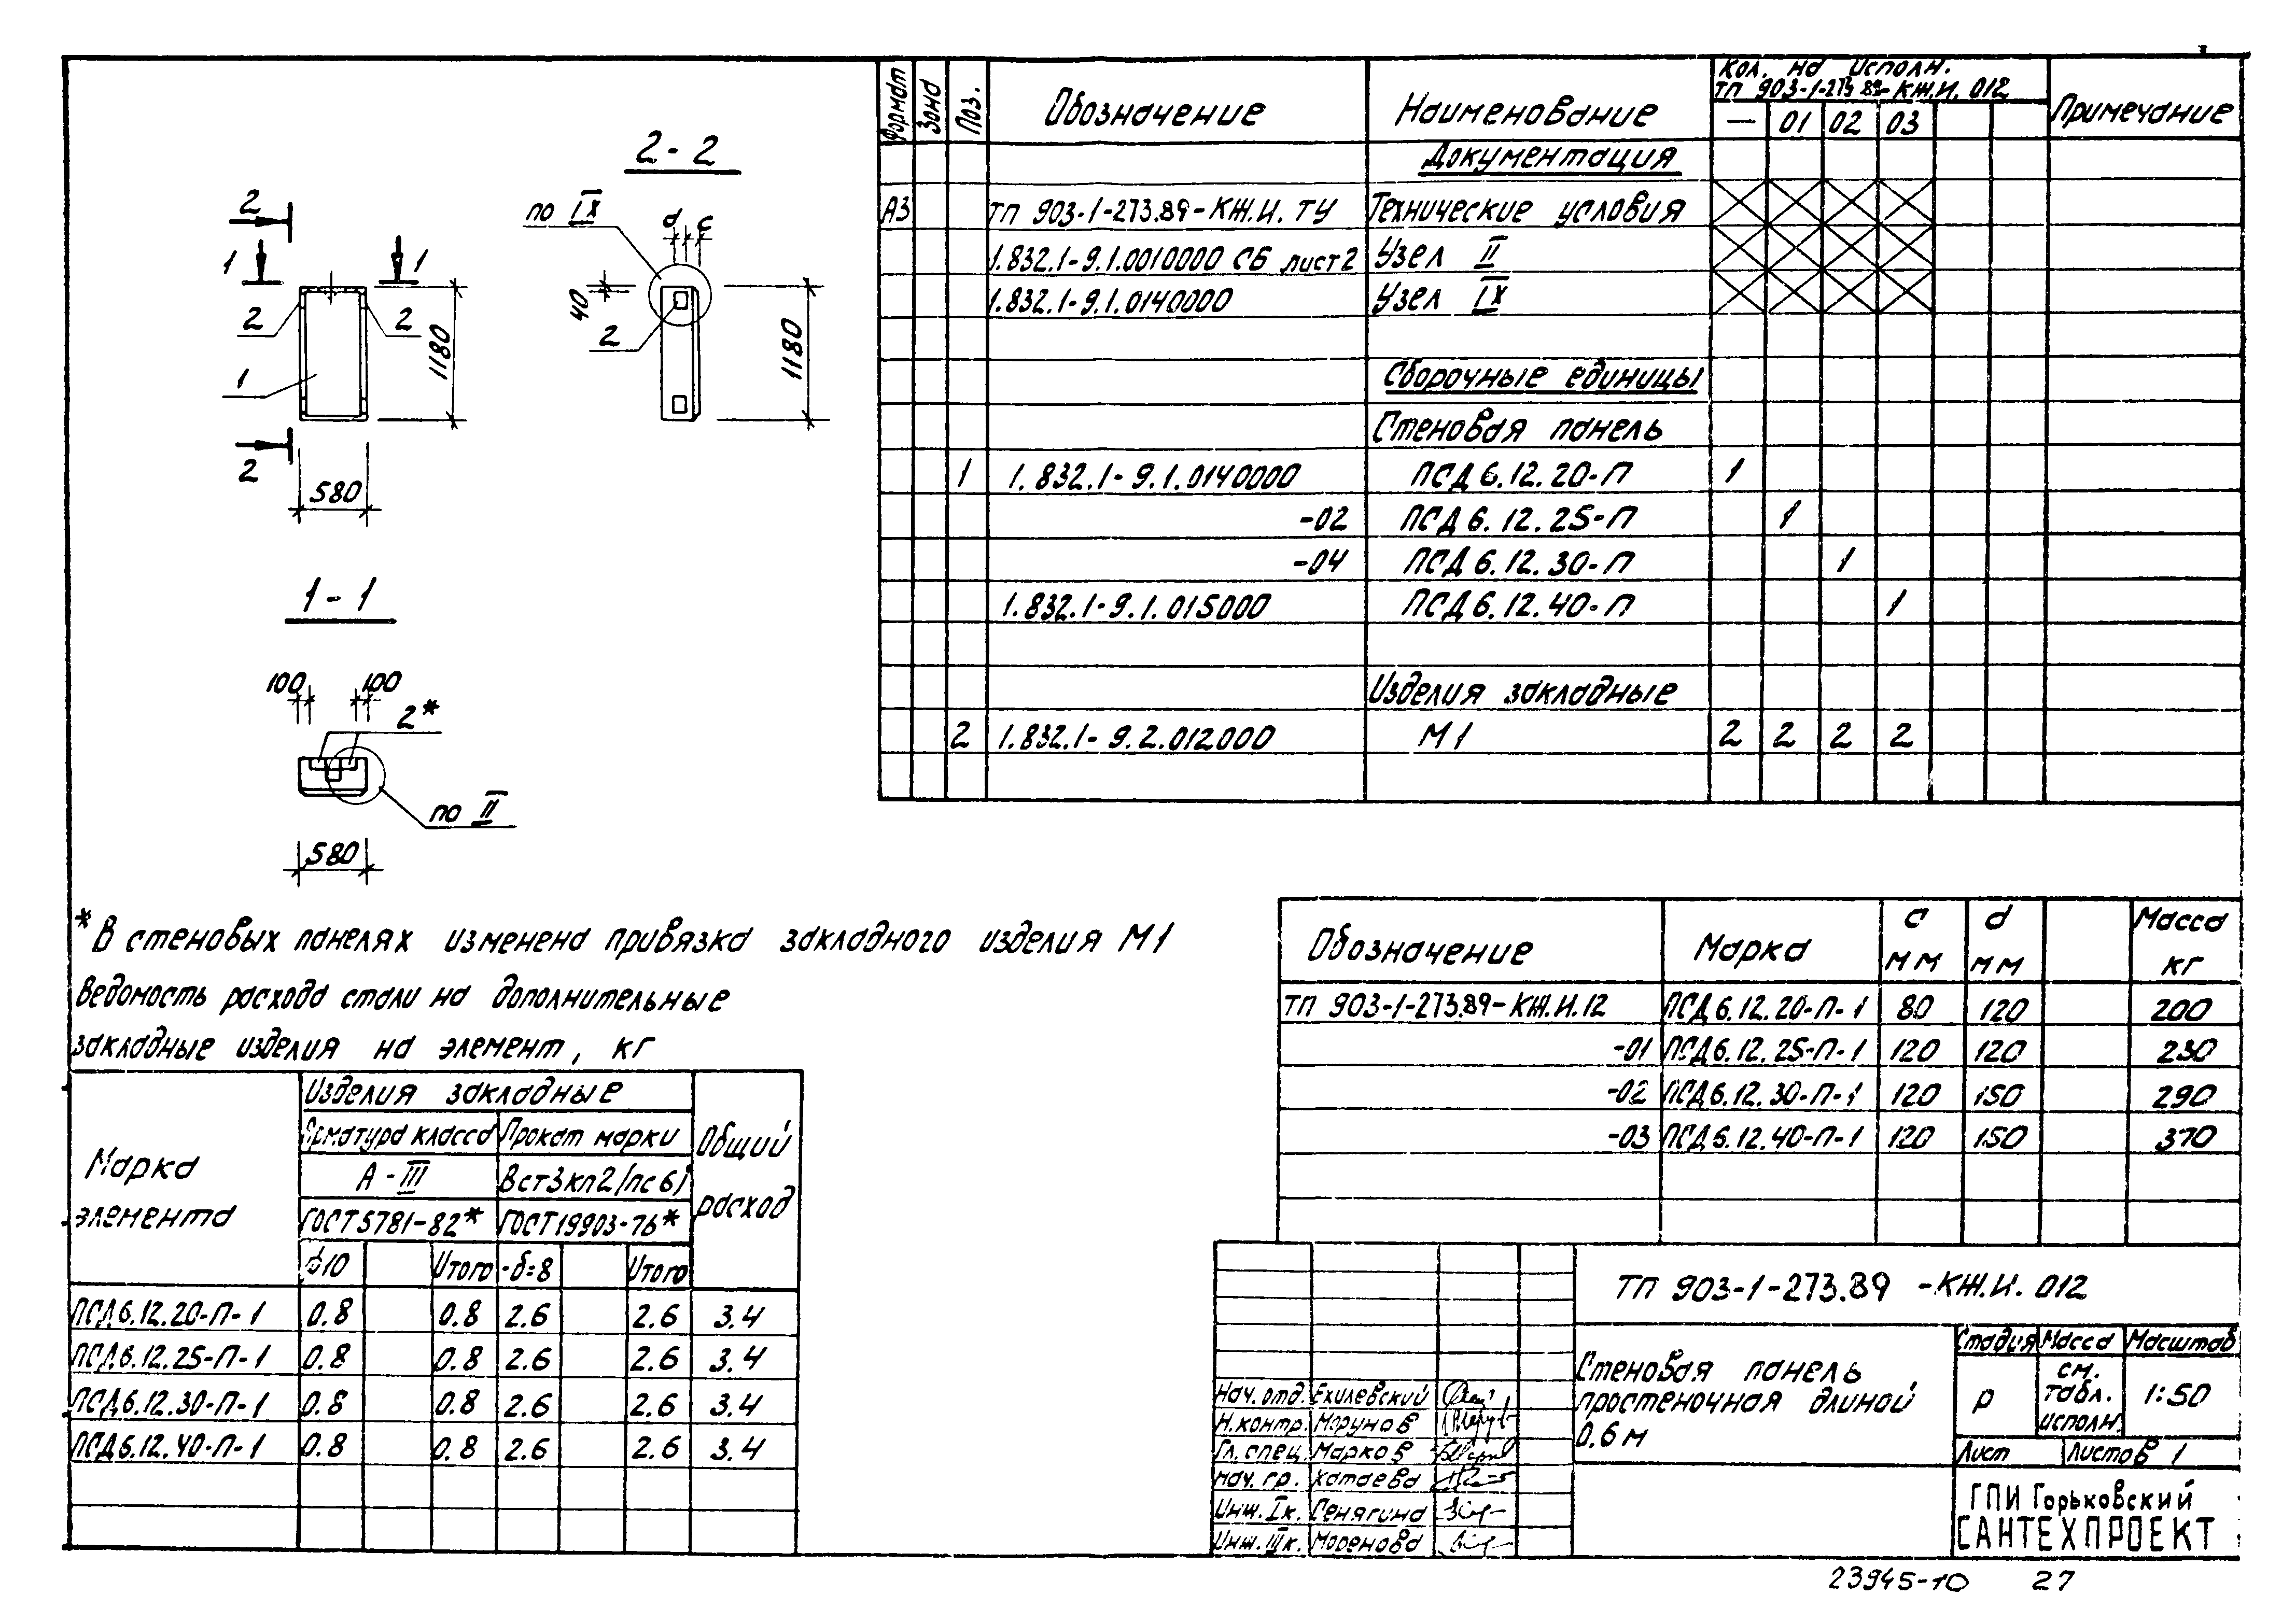 2-2
2
1
1
2
2
1
2
1180
580
по IX
d
c
40
2
1180
1-1
100
100
2*
по II
580
Формат
Зона
Поз.
Обозначение
Наименование
Кол. на Исполн.
ТП 903-1-273.89-КЖ.И. 012
—
01
02
03
Примечание
Документация
А3 ТП 903-1-273.89-КЖ.И. ТУ Технические условия
1.832.1-9.1.0010000 СБ лист 2 Узел II
1.832.1-9.1.0140000 Узел IX
Сборочные единицы
Стеновая панель
1 1.832.1-9.1.0140000 ПСД 6.12.20-П 1
-02 ПСД 6.12.25-П 1
-04 ПСД 6.12.30-П 1
1.832.1-9.1.015000 ПСД 6.12.40-П 1
Изделия закладные
2 1.832.1-9.2.012000 М1 2 2 2 2
* В стеновых панелях изменена привязка закладного изделия М1
Ведомость расхода стали на дополнительные
закладные изделия на элемент, кг
Марка
элемента
Изделия закладные
Арматура класса
А-III
ГОСТ 5781-82*
Прокат марки
Вст3кп2/пс6/
ГОСТ 19903-76*
Общий
расход
ϕ10 Итого -δ=8 Итого
ПСД 6.12.20-П-1 0.8 0.8 2.6 2.6 3.4
ПСД 6.12.25-П-1 0.8 0.8 2.6 2.6 3.4
ПСД 6.12.30-П-1 0.8 0.8 2.6 2.6 3.4
ПСД 6.12.40-П-1 0.8 0.8 2.6 2.6 3.4
Обозначение
Марка
c
мм
d
мм
Масса
кг
ТП 903-1-273.89-КЖ.И.12 ПСД 6.12.20-П-1 80 120 200
-01 ПСД 6.12.25-П-1 120 120 230
-02 ПСД 6.12.30-П-1 120 150 290
-03 ПСД 6.12.40-П-1 120 150 370
ТП 903-1-273.89 -КЖ.И. 012
Стеновая панель
простеночная длиной
0.6 м
Стадия Масса Масштаб
р
см.
табл.
исполн.
1:50
Лист Листов 1
ГПИ Горьковский
САНТЕХПРОЕКТ
Нач. отд. Ехилевский
Н.контр. Морунов
Гл. спец. Марков
Нач. гр. Хатаева
Инж. Iк. Сенягина
Инж. IIIк. Моренова
23945-10 27